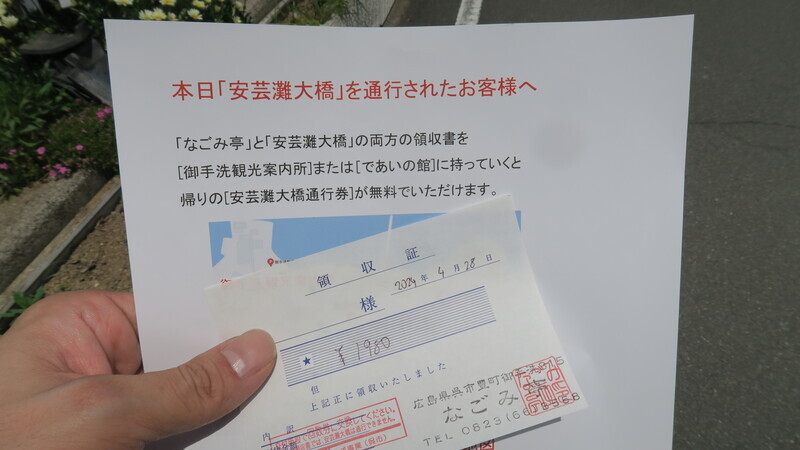 本日「安芸灘大橋」を通行されたお客様へ
「なごみ亭」と「安芸灘大橋」の両方の領収書を
[御手洗観光案内所]または[であいの館]に持っていくと
帰りの[安芸灘大橋通行券]が無料でいただけます。
領収証
様
2024年4月28日
★ ¥1980
但
上記正に領収いたしました
内訳
広島県呉市豊町御手洗
なごみ亭
TEL 0823(66)